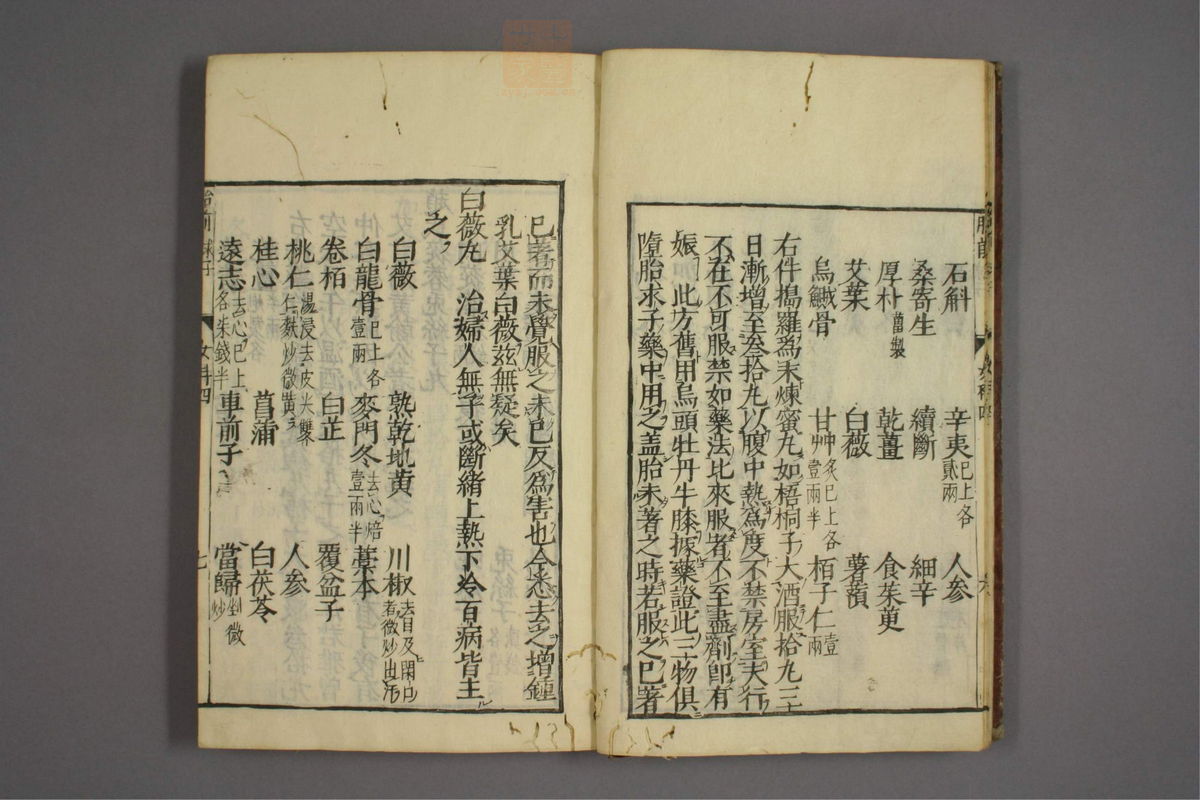 石斛 辛夷已上各貳兩 人參
桑寄生 續斷 細辛
厚朴薑製 乾薑 食茱萸
艾葉 白薇 薯蕷
烏鰂骨 甘艸炙已上各壹兩半 栢子仁壹兩
右件搗羅爲末煉蜜丸如梧桐子大酒服拾丸三
日漸增至叁拾丸以腹中熱爲度不禁房室夫行
不在不可服禁如藥法比來服者不至盡劑卽有
娠 此方舊用烏頭牡丹牛膝據藥證此三物俱
墮胎求子藥中用之盖胎未著之時若服之已著
已著而未覺服之未已反爲害也今悉去之增鍾
乳艾葉白薇茲無疑矣
白薇丸 治婦人無子或斷緒上熱下冷百病皆主
之
白薇 熟乾地黄 川椒去目及閉口者微炒出汗
白龍骨已上各壹兩 麥門冬去心焙壹兩半 藁本
卷栢 白芷 覆盆子
桃仁湯浸去皮尖雙仁麩炒微黄 人參
桂心 菖蒲 白茯苓
遠志去心已上各朱錢半 車前子 當歸剉微炒
女科四
七